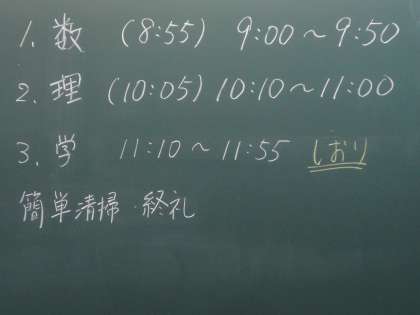 1. 数 (8:55) 9:00～9:50
2. 理 (10:05) 10:10～11:00
3. 学 11:10～11:55 しおり
簡単清掃・終礼